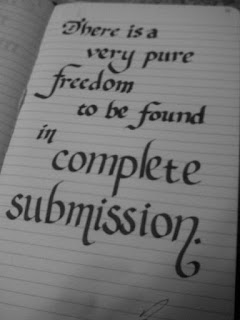 There is a
very pure
freedom
to be found
in
complete
submission.